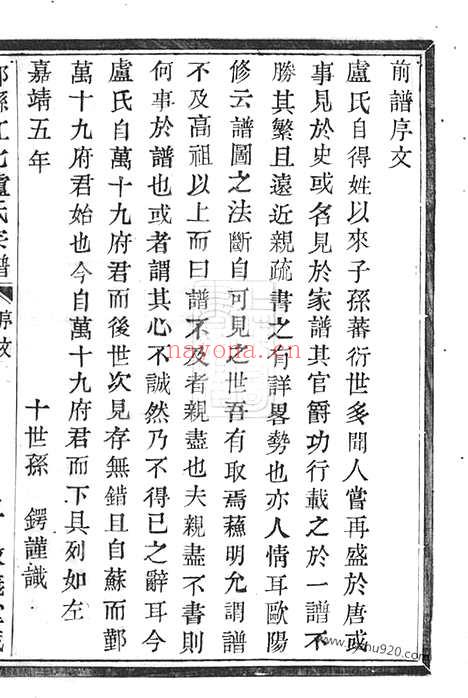 前譜序文
盧氏自得姓以來子孫蕃衍世多聞人嘗再盛於唐或
事見於史或名見於家譜其官爵功行載之於一譜不
勝其繁且遠近親疏書之有詳畧勢也亦人情耳歐陽
修云譜圖之法斷自可見之世吾有取焉蘓明允謂譜
不及高祖以上而曰譜不及者親盡也夫親盡不書則
何事於譜也或者謂其心不誠然乃不得已之辭耳今
盧氏自萬十九府君而後世次見存無錯且自蘇而鄞
萬十九府君始也今自萬十九府君而下具列如左
嘉靖五年
十世孫 鍔謹識
盧氏宗譜
序文
nayona.cn
920.com